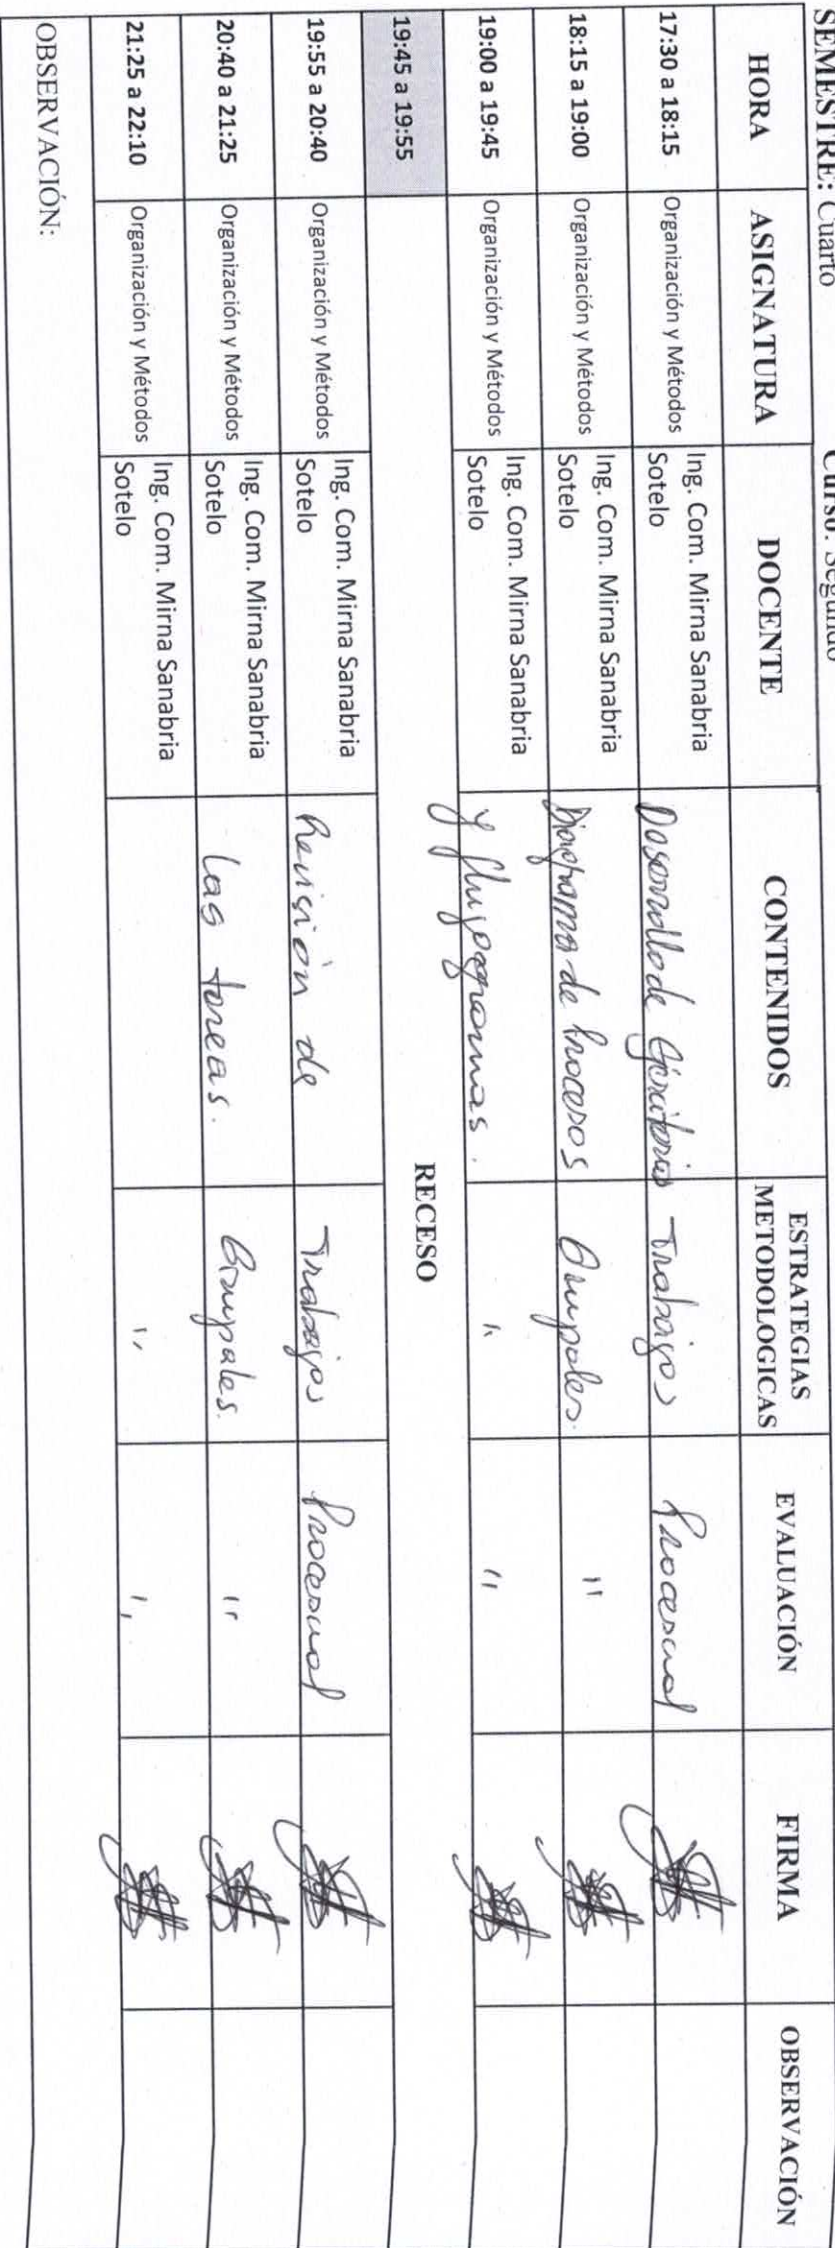 SEMESTRE: Cuarto Curso: Segundo
HORA ASIGNATURA DOCENTE CONTENIDOS ESTRATEGIAS METODOLOGICAS EVALUACIÓN FIRMA OBSERVACIÓN
17:30 a 18:15 Organización y Métodos Ing. Com. Mirna Sanabria Sotelo Desarrollo de Ejercitorios Trabajos Procesual
18:15 a 19:00 Organización y Métodos Ing. Com. Mirna Sanabria Sotelo Diagrama de Procesos Grupales. "
19:00 a 19:45 Organización y Métodos Ing. Com. Mirna Sanabria Sotelo y flujogramas. " "
19:45 a 19:55 RECESO
19:55 a 20:40 Organización y Métodos Ing. Com. Mirna Sanabria Sotelo Revisión de Trabajos Procesual
20:40 a 21:25 Organización y Métodos Ing. Com. Mirna Sanabria Sotelo las tareas. Grupales. "
21:25 a 22:10 Organización y Métodos Ing. Com. Mirna Sanabria Sotelo " "
OBSERVACIÓN: